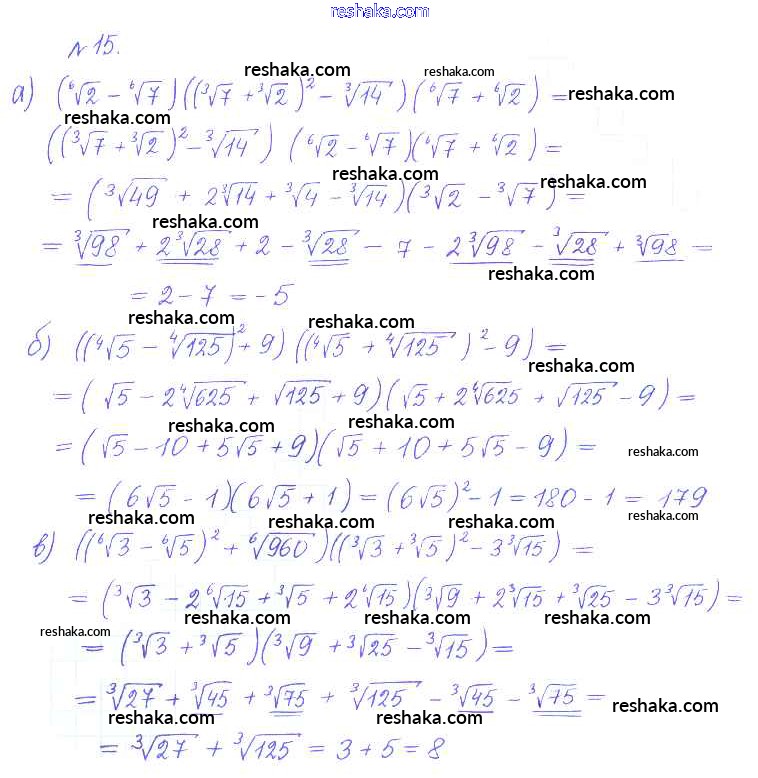 www.reshaka.com
№ 15.
reshaka.com reshaka.com
а) (⁶√2 − ⁶√7)((³√7 + ³√2)² − ³√14)(⁶√7 + ⁶√2) = reshaka.com
reshaka.com
((³√7 + ³√2)² − ³√14) (⁶√2 − ⁶√7)(⁶√7 + ⁶√2) =
reshaka.com reshaka.com
= (³√49 + 2³√14 + ³√4 − ³√14)(³√2 − ³√7) =
reshaka.com
= ³√98 + 2³√28 + 2 − ³√28 − 7 − 2³√98 − ³√28 + ³√98 =
reshaka.com
= 2 − 7 = −5
reshaka.com reshaka.com
б) ((⁴√5 − ⁴√125)² + 9)((⁴√5 + ⁴√125)² − 9) =
reshaka.com
= (√5 − 2⁴√625 + √125 + 9)(√5 + 2⁴√625 + √125 − 9) =
reshaka.com reshaka.com
= (√5 − 10 + 5√5 + 9)(√5 + 10 + 5√5 − 9) = reshaka.com
= (6√5 − 1)(6√5 + 1) = (6√5)² − 1 = 180 − 1 = 179
reshaka.com reshaka.com reshaka.com reshaka.com
в) ((⁶√3 − ⁶√5)² + ⁶√960)((³√3 + ³√5)² − 3³√15) =
= (³√3 − 2⁶√15 + ³√5 + 2⁶√15)(³√9 + 2³√15 + ³√25 − 3³√15) =
reshaka.com reshaka.com reshaka.com
reshaka.com
= (³√3 + ³√5)(³√9 + ³√25 − ³√15) =
= ³√27 + ³√45 + ³√75 + ³√125 − ³√45 − ³√75 = reshaka.com
reshaka.com reshaka.com reshaka.com
= ³√27 + ³√125 = 3 + 5 = 8